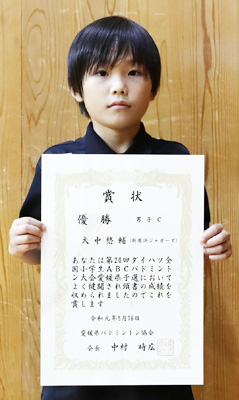 賞状
優勝 男子C
大中悠輔 (新居浜ジャガーズ)
あなたは第20回ダイハツ全
国小学生ABCバドミント
ン大会愛媛県予選会において
よく健闘され頭書の成績を
収められましたのでこれを
賞します
令和元年5月26日
愛媛県バドミントン協会
会長 中村時広